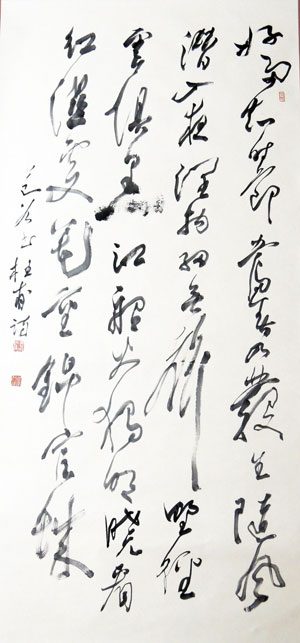 好雨知时節當春乃發生随風
潛入夜潤物細无聲野徑
雲俱黑江船火獨明曉看
紅濕處花重錦官城
杜甫詩